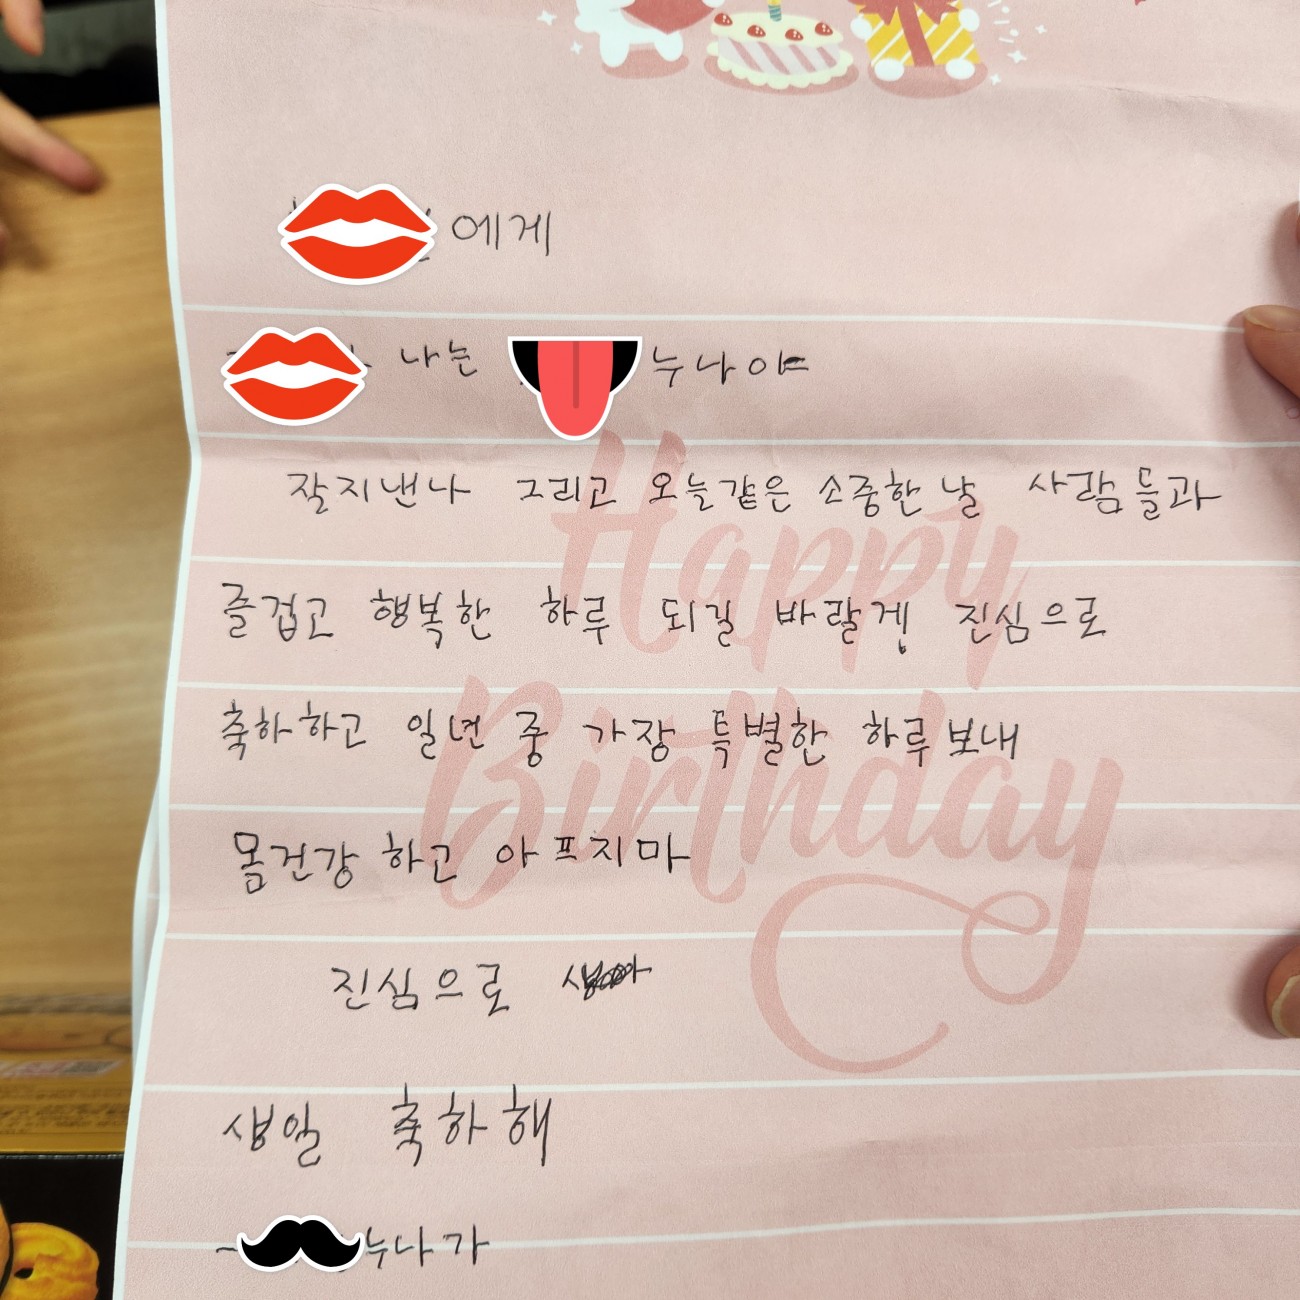 에게
나는 누나야
잘지낸나 그리고 오늘같은 소중한 날 사람들과
즐겁고 행복한 하루 되길 바랄게 진심으로
축하하고 일년 중 가장 특별한 하루보내
몸건강 하고 아프지마
진심으로
생일 축하해
누나가
Happy
Birthday